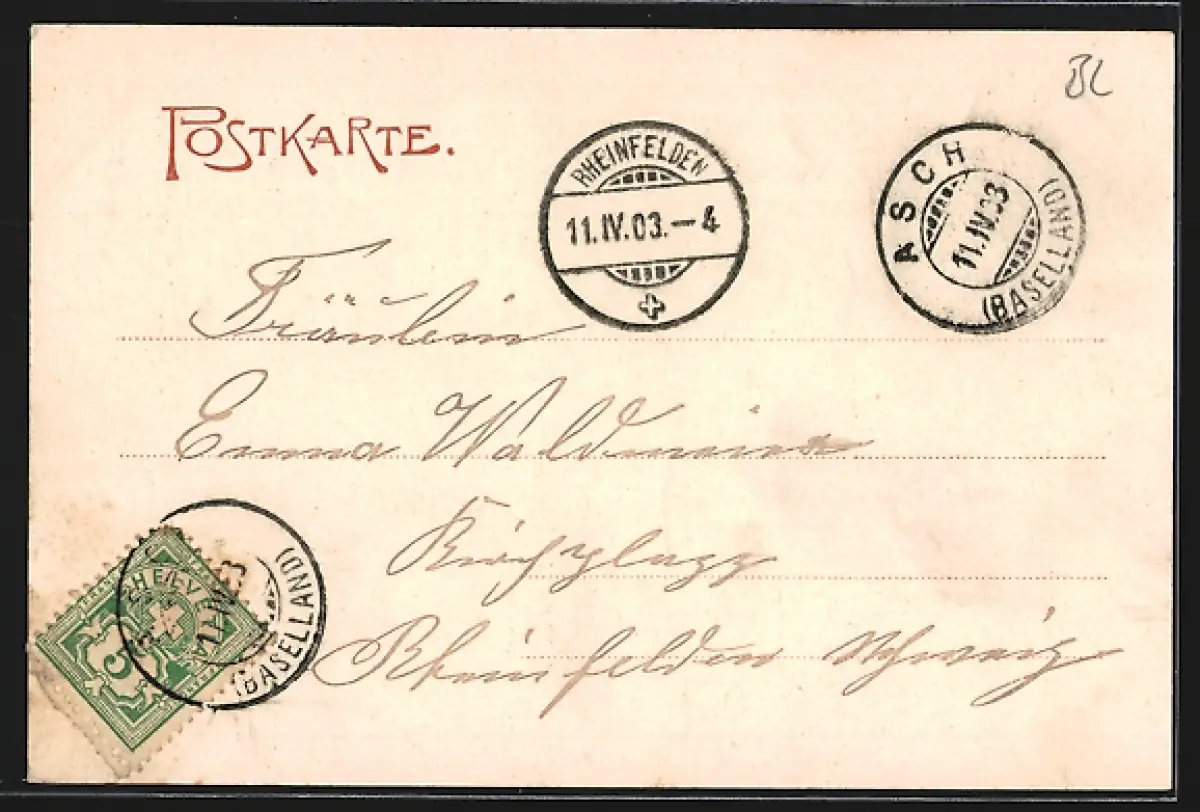 BL
POSTKARTE.
RHEINFELDEN
11.IV.03.–4
ASCH
11.IV.03
(BASELLAND)
Fräulein
Emma Waldmeier
Kirchplazz
Rheinfelden Schweiz
HELV
11.IV.03
(BASELLAND)
5